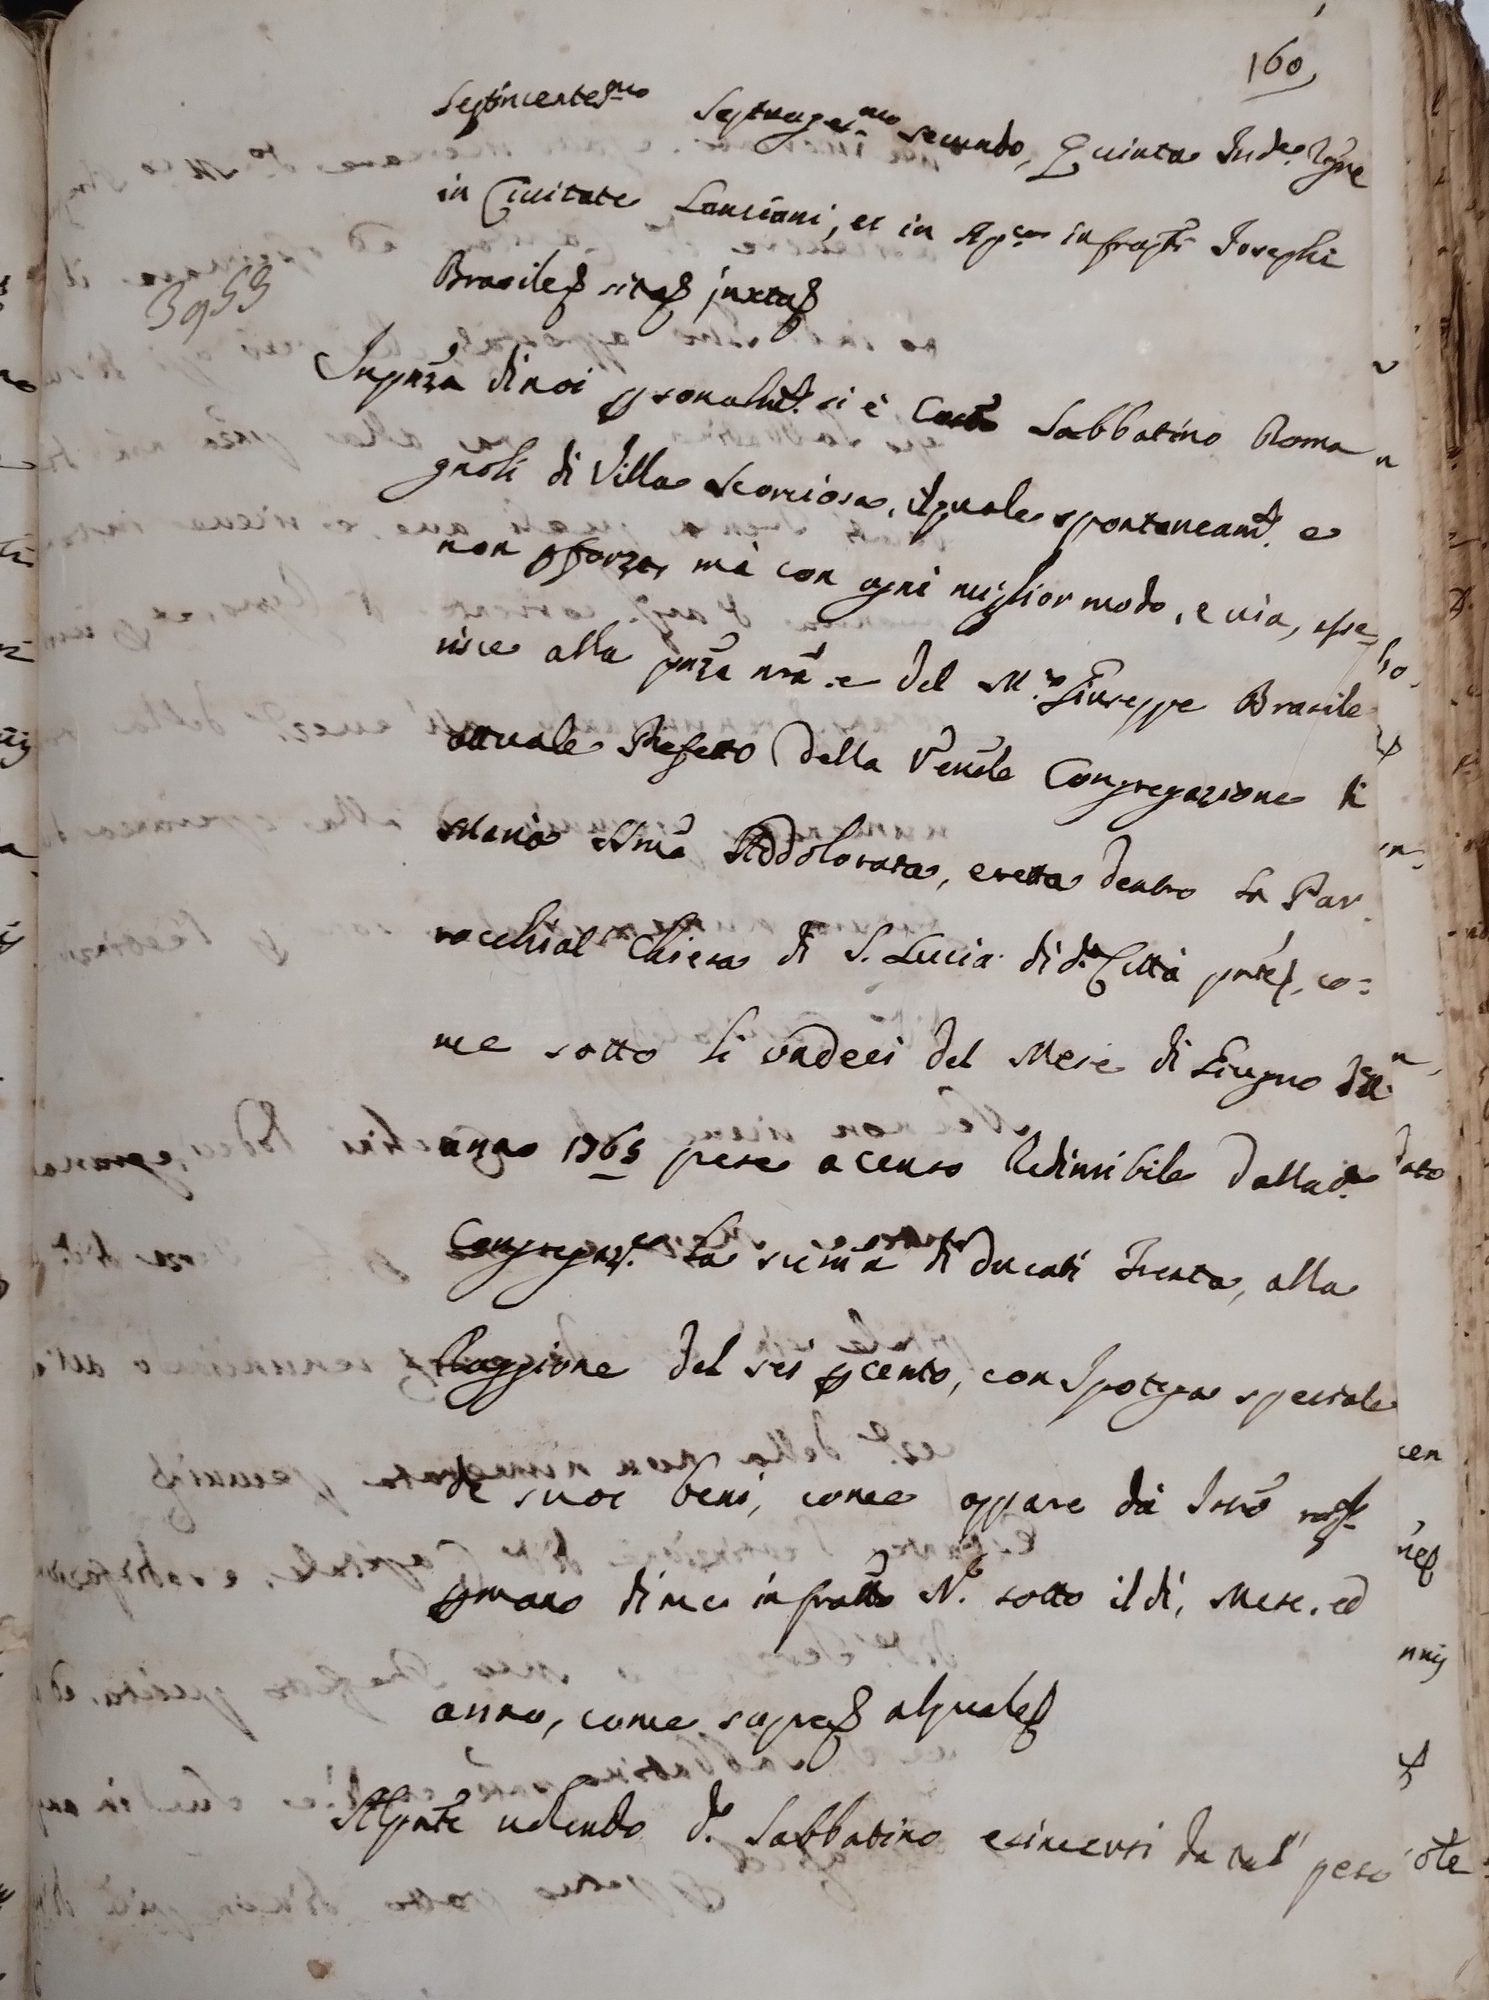 160
Septincentesmo Septuagesmo secundo, Quinta Inde. Regne
in Civitate Lanciani, et in Apca infraptí Josephi
Brasile sita juxta
3953
In pnza di noi psonalmte. si è Cost.o Sabbatino Roma
gnoli di Villa Scorciosa, il quale spontaneamte. e
non p forza, mà con ogni miglior modo, e via, asse
risce alla pnza nrã. e del M.co Giuseppe Brasile
attuale Prefetto della Venle Congregazione di
Maria SSma Addolorata, eretta dentro la Par
rocchial Chiesa di S. Lucia di da. Città pnte, co=
me sotto li undeci del Mese di Giugno dell'
anno 1765 prese a censo Redimibile dalla da.
Congregazne. la summa di ducati Trenta, alla
Raggione del sei p cento, con Ipoteca speciale
de suoi beni, come appare dà Istro rog.
p mano di me infratto Nr. sotto il dì, Mese, ed
anno, come sopra al quale
Al pnte volendo do. Sabbatino esimersi da tal' peso